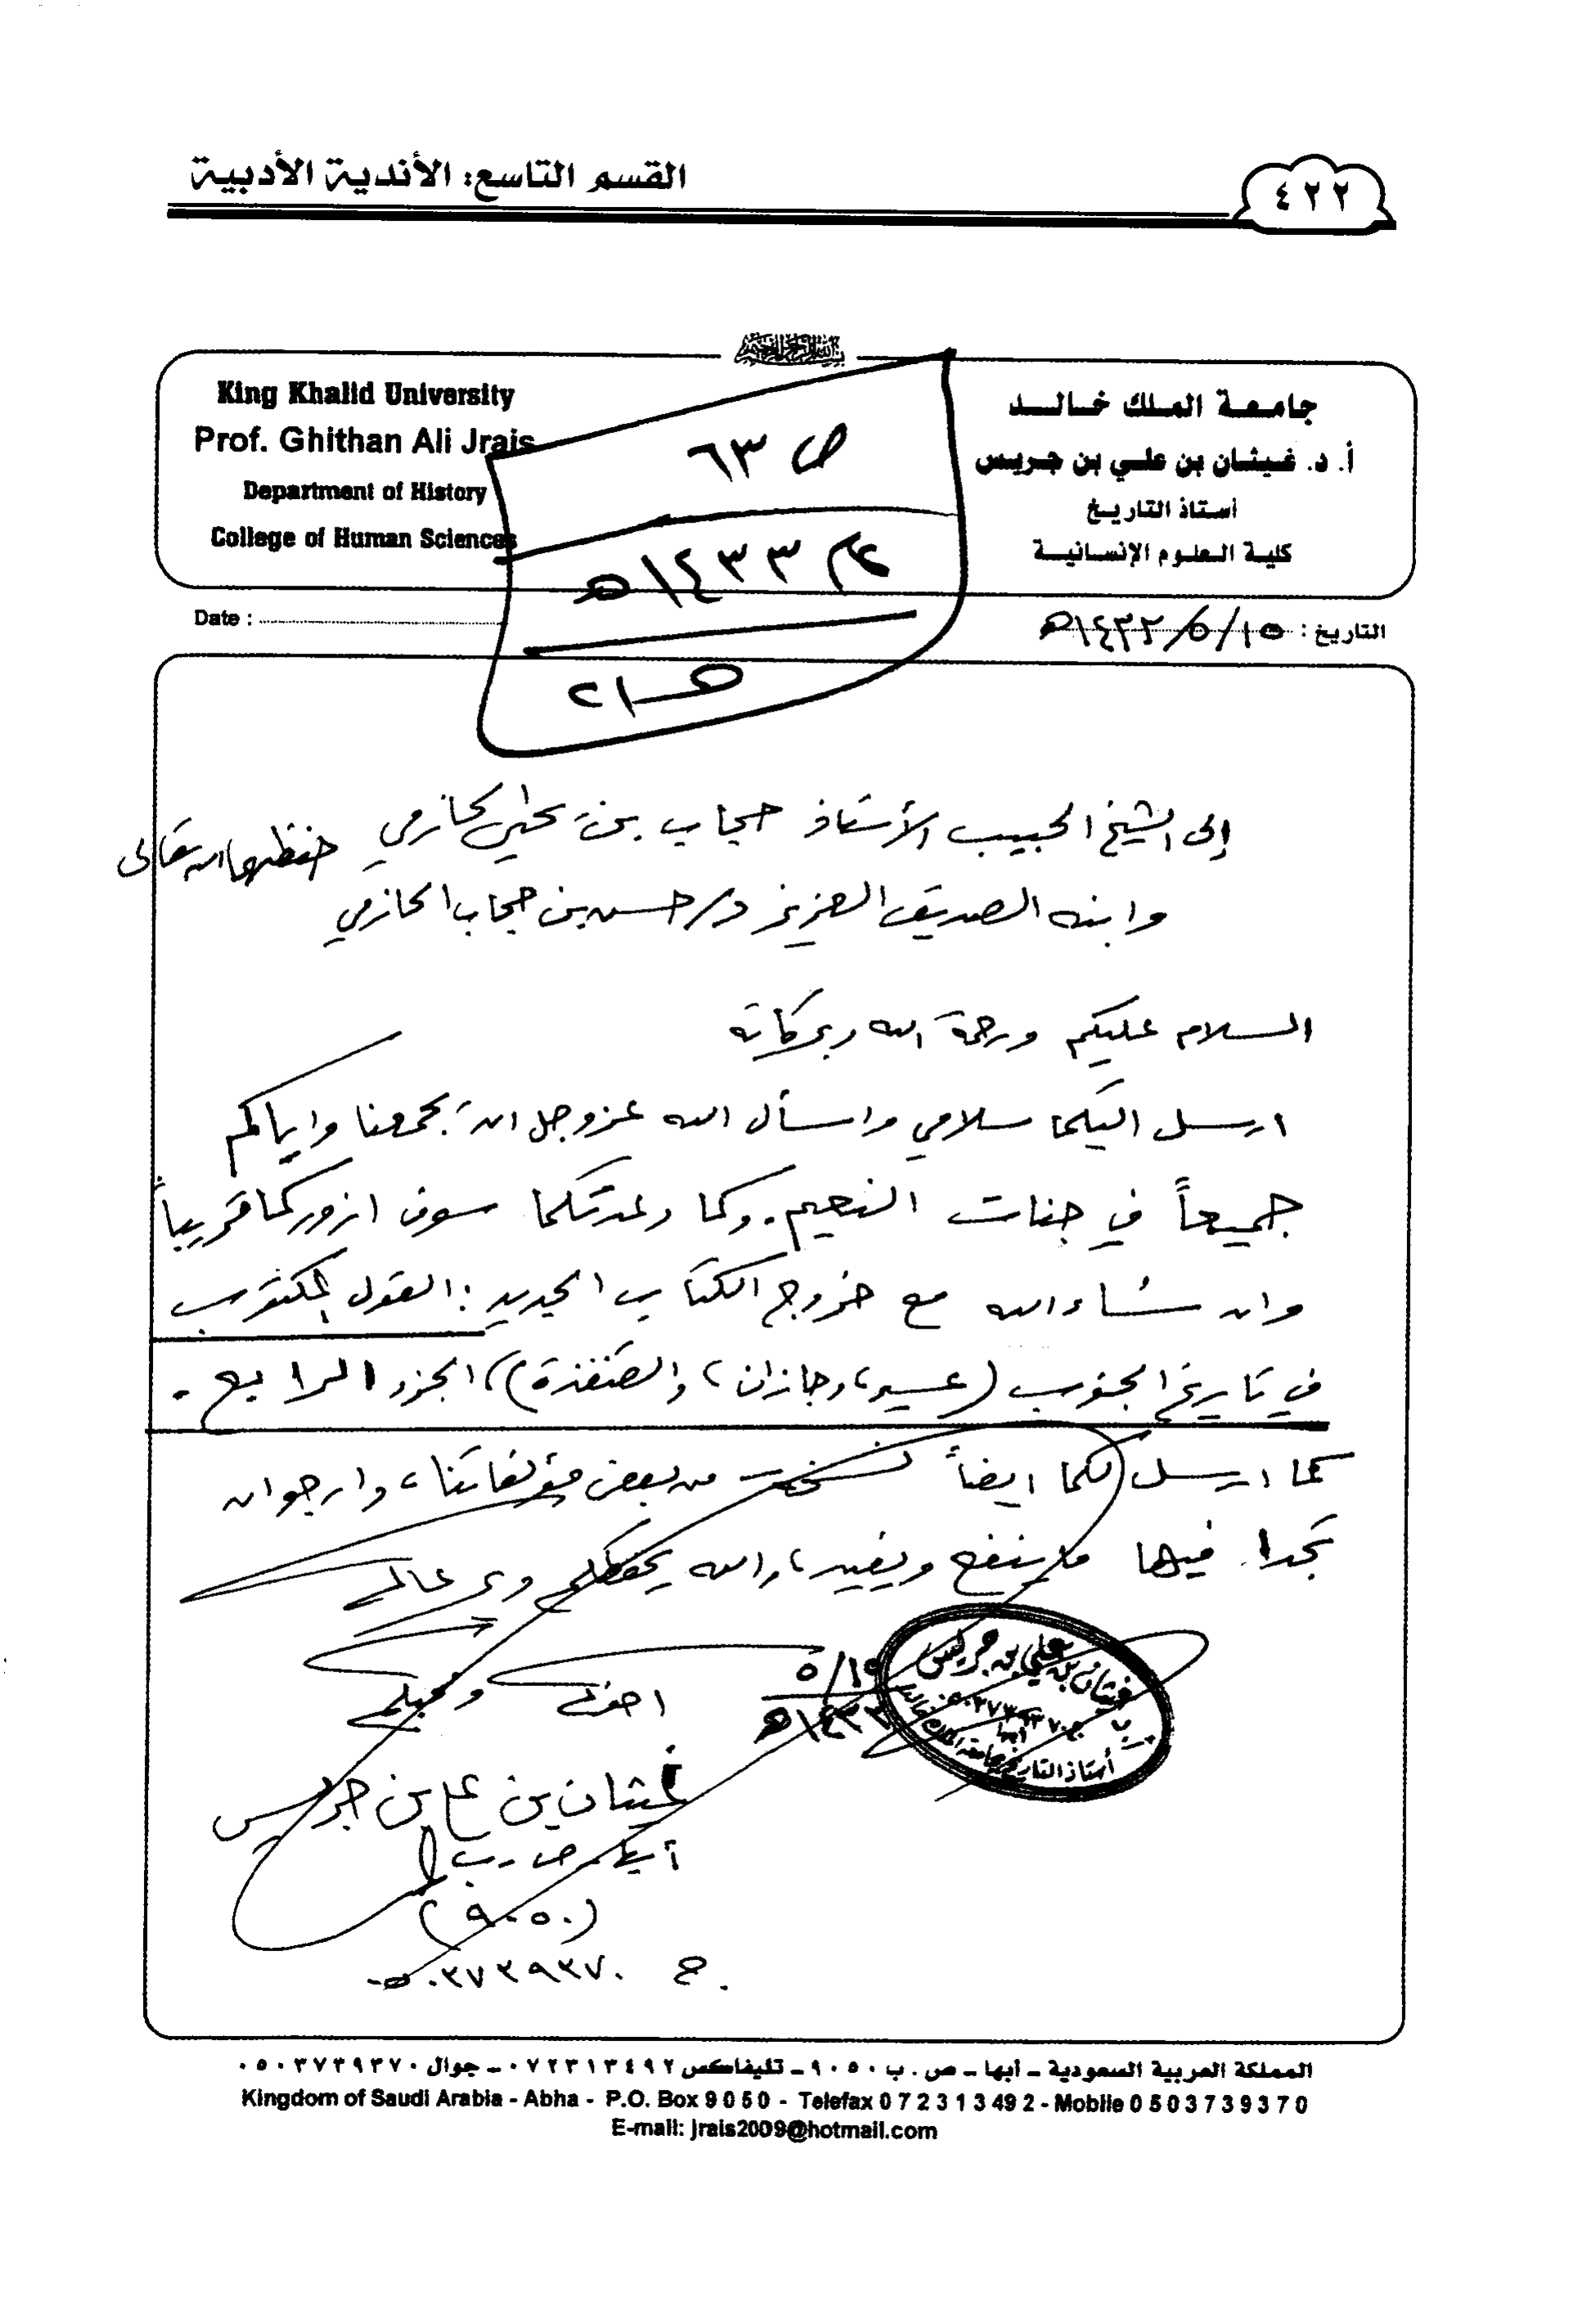 ٤٢٢
القسم التاسع: الأندية الأدبية
جامعة الملك خالد
أ. د. غيثان بن علي بن جريس
أستاذ التاريخ
كلية العلوم الإنسانية
King Khalid University
Prof. Ghithan Ali Jrais
Department of History
College of Human Sciences
ص ٦٣
١٤٣٣هـ
التاريخ : ١٥/٥/١٤٣٣هـ
Date :
إلى الشيخ الحبيب الأستاذ حجاب بن يحيى الحازمي
وابنه الصديق العزيز د/ حسن بن حجاب الحازمي
حفظهما الله تعالى
السلام عليكم ورحمة الله وبركاته
ارسل اليكما سلامي واسأل الله عز وجل ان يجمعنا واياكم
جميعاً في جنات النعيم. وكما وعدتكما سوف ازوركما قريباً
وان شاء الله مع خروج الكتاب الجديد : القول المكتوب
في تاريخ الجنوب (عسير، وجازان، والقنفذة)، الجزء الرابع .
كما ارسل لكما ايضاً نسخ من بعض مؤلفاتنا، وارجو ان
تجدا فيها ما ينفع ويفيد، والله يحفظكم ويرعاكم
اخوكم ومحبكم
غيثان بن علي بن جريس
أبها ص.ب
(٩٠٥٠)
ج ٠٥٠٣٧٣٩٣٧٠
١٥/٥
١٤٣٣هـ
غيثان بن علي بن جريس
أبها
أستاذ التاريخ بجامعة الملك خالد
المملكة العربية السعودية – أبها – ص. ب ٩٠٥٠ – تليفاكس ٠٧٢٣١٣٤٩٢ – جوال ٠٥٠٣٧٣٩٣٧٠
Kingdom of Saudi Arabia - Abha - P.O. Box 9 0 5 0 - Telefax 0 7 2 3 1 3 49 2 - Mobile 0 5 0 3 7 3 9 3 7 0
E-mail: jrais2009@hotmail.com